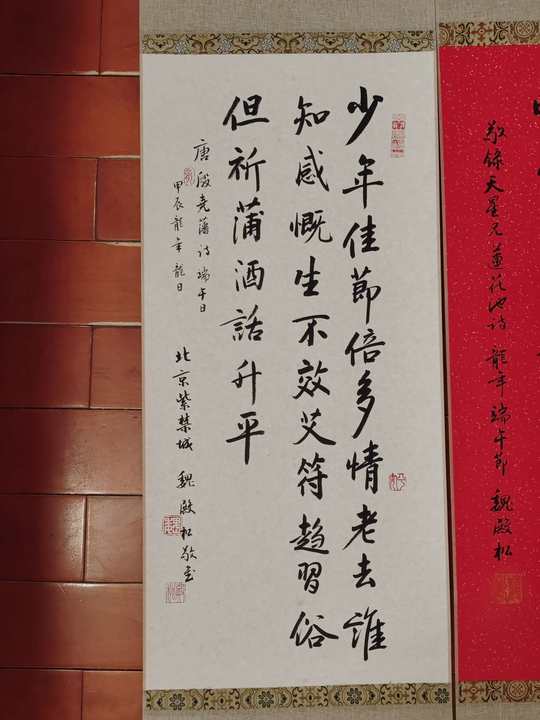 敬錄天星兄蓮花池詩 龍年端午節 魏殿松
少年佳節倍多情老去誰
知感慨生不效艾符趨習俗
但祈蒲酒話升平
唐殷堯藩詩端午日
甲辰龍年龍日
北京紫禁城 魏殿松敬书